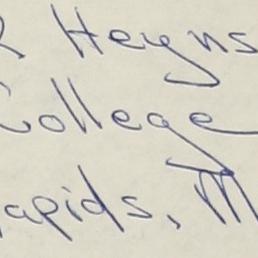 R Heyns
College
apids, M